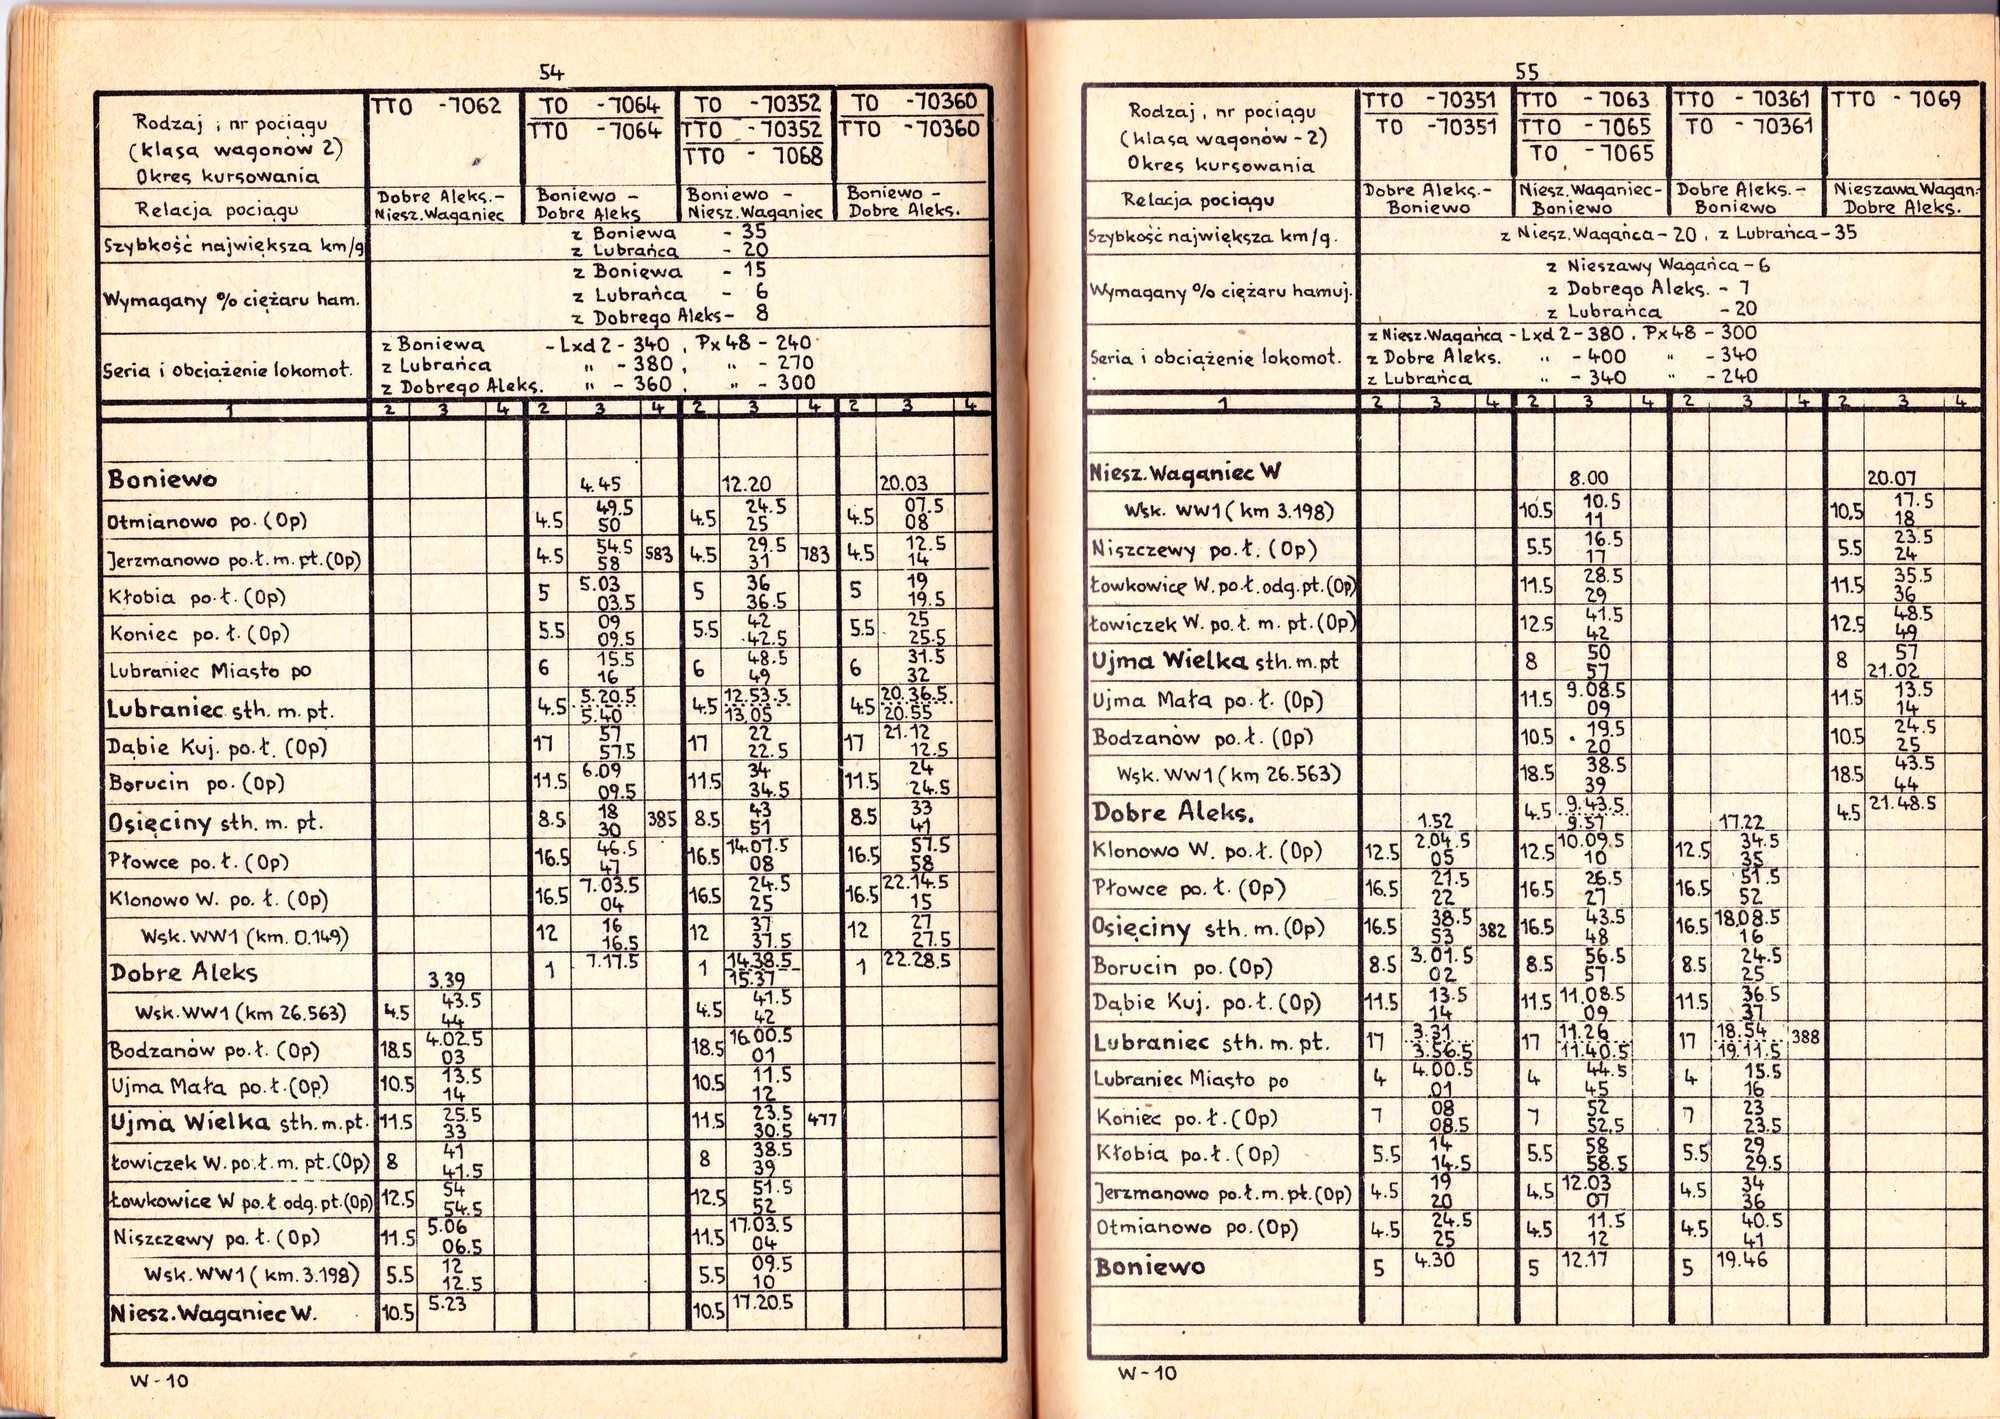 54
Rodzaj i nr pociągu TTO -7062 TO -7064 TO -70352 TO -70360
(klasa wagonów 2) TTO -7064 TTO -70352 TTO -70360
Okres kursowania TTO - 7068
Relacja pociągu Dobre Aleks.- Boniewo - Boniewo - Boniewo -
Niesz.Waganiec Dobre Aleks Niesz.Waganiec Dobre Aleks.
Szybkość największa km/g z Boniewa - 35
z Lubrańca - 20
Wymagany % ciężaru ham. z Boniewa - 15
z Lubrańca - 6
z Dobrego Aleks- 8
Seria i obciążenie lokomot. z Boniewa -Lxd2-340 , Px48-240
z Lubrańca " -380 , " -270
z Dobrego Aleks. " -360 , " -300
1 2 3 4 2 3 4 2 3 4 2 3 4
Boniewo 4.45 12.20 20.03
Otmianowo po. (Op) 4.5 49.5 50 4.5 24.5 25 4.5 07.5 08
Jerzmanowo po.ł.m.pt.(Op) 4.5 54.5 58 583 4.5 29.5 31 783 4.5 12.5 14
Kłobia po.ł.(Op) 5 5.03 03.5 5 36 36.5 5 19 19.5
Koniec po.ł.(Op) 5.5 09 09.5 5.5 42 42.5 5.5 25 25.5
Lubraniec Miasto po 6 15.5 16 6 48.5 49 6 31.5 32
Lubraniec sth.m.pt. 4.5 5.20.5 5.40 4.5 12.53.5 13.05 4.5 20.36.5 20.55
Dąbie Kuj. po.ł. (Op) 17 57 57.5 17 22 22.5 17 21.12 12.5
Borucin po. (Op) 11.5 6.09 09.5 11.5 34 34.5 11.5 24 24.5
Osięciny sth. m. pt. 8.5 18 30 385 8.5 43 51 8.5 33 41
Płowce po.ł.(Op) 16.5 46.5 47 16.5 14.07.5 08 16.5 57.5 58
Klonowo W. po. ł. (Op) 16.5 7.03.5 04 16.5 24.5 25 16.5 22.14.5 15
Wsk.WW1 (km. 0.149) 12 16 16.5 12 37 37.5 12 27 27.5
Dobre Aleks 3.39 1 7.17.5 1 14.38.5 15.37 1 22.28.5
Wsk.WW1 (km 26.563) 4.5 43.5 44 4.5 41.5 42
Bodzanów po.ł. (Op) 18.5 4.02.5 03 18.5 16.00.5 01
Ujma Mała po.ł.(Op) 10.5 13.5 14 10.5 11.5 12
Ujma Wielka sth.m.pt. 11.5 25.5 33 11.5 23.5 30.5 477
Łowiczek W.po.ł.m.pt.(Op) 8 41 41.5 8 38.5 39
Łowkowice W po.ł.odg.pt.(Op) 12.5 54 54.5 12.5 51.5 52
Niszczewy po.ł.(Op) 11.5 5.06 06.5 11.5 17.03.5 04
Wsk.WW1 (km. 3.198) 5.5 12 12.5 5.5 09.5 10
Niesz.Waganiec W. 10.5 5.23 10.5 17.20.5
W-10
55
Rodzaj, nr pociągu TTO -70351 TTO - 7063 TTO - 70361 TTO - 7069
(klasa wagonów-2) TO -70351 TTO - 7065 TO - 70361
Okres kursowania TO - 7065
Relacja pociągu Dobre Aleks.- Niesz.Waganiec- Dobre Aleks.- Nieszawa Wagan.-
Boniewo Boniewo Boniewo Dobre Aleks.
Szybkość największa km/g. z Niesz.Wagańca-20 , z Lubrańca-35
Wymagany % ciężaru hamuj. z Nieszawy Wagańca-6
z Dobrego Aleks. - 7
z Lubrańca -20
Seria i obciążenie lokomot. z Niesz.Wagańca -Lxd2-380 , Px48-300
z Dobre Aleks. " -400 " -340
z Lubrańca " -340 " -240
1 2 3 4 2 3 4 2 3 4 2 3 4
Niesz.Waganiec W 8.00 20.07
Wsk. WW1 (km 3.198) 10.5 10.5 11 10.5 17.5 18
Niszczewy po.ł. (Op) 5.5 16.5 17 5.5 23.5 24
Łowkowice W.po.ł.odg.pt.(Op) 11.5 28.5 29 11.5 35.5 36
Łowiczek W. po.ł. m. pt.(Op) 12.5 41.5 42 12.5 48.5 49
Ujma Wielka sth.m.pt 8 50 57 8 57 21.02
Ujma Mała po.ł. (Op) 11.5 9.08.5 09 11.5 13.5 14
Bodzanów po.ł. (Op) 10.5 19.5 20 10.5 24.5 25
Wsk.WW1 (km 26.563) 18.5 38.5 39 18.5 43.5 44
Dobre Aleks. 1.52 4.5 9.43.5 9.57 17.22 4.5 21.48.5
Klonowo W. po.ł.(Op) 12.5 2.04.5 05 12.5 10.09.5 10 12.5 34.5 35
Płowce po.ł.(Op) 16.5 21.5 22 16.5 26.5 27 16.5 51.5 52
Osięciny sth. m.(Op) 16.5 38.5 53 382 16.5 43.5 48 16.5 18.08.5 16
Borucin po.(Op) 8.5 3.01.5 02 8.5 56.5 57 8.5 24.5 25
Dąbie Kuj. po.ł.(Op) 11.5 13.5 14 11.5 11.08.5 09 11.5 36.5 37
Lubraniec sth. m.pt. 17 3.31 3.56.5 17 11.26 11.40.5 17 18.54 19.11.5 388
Lubraniec Miasto po 4 4.00.5 01 4 44.5 45 4 15.5 16
Koniec po.ł.(Op) 7 08 08.5 7 52 52.5 7 23 23.5
Kłobia po.ł.(Op) 5.5 14 14.5 5.5 58 58.5 5.5 29 29.5
Jerzmanowo po.ł.m.pt.(Op) 4.5 19 20 4.5 12.03 07 4.5 34 36
Otmianowo po.(Op) 4.5 24.5 25 4.5 11.5 12 4.5 40.5 41
Boniewo 5 4.30 5 12.17 5 19.46
W-10